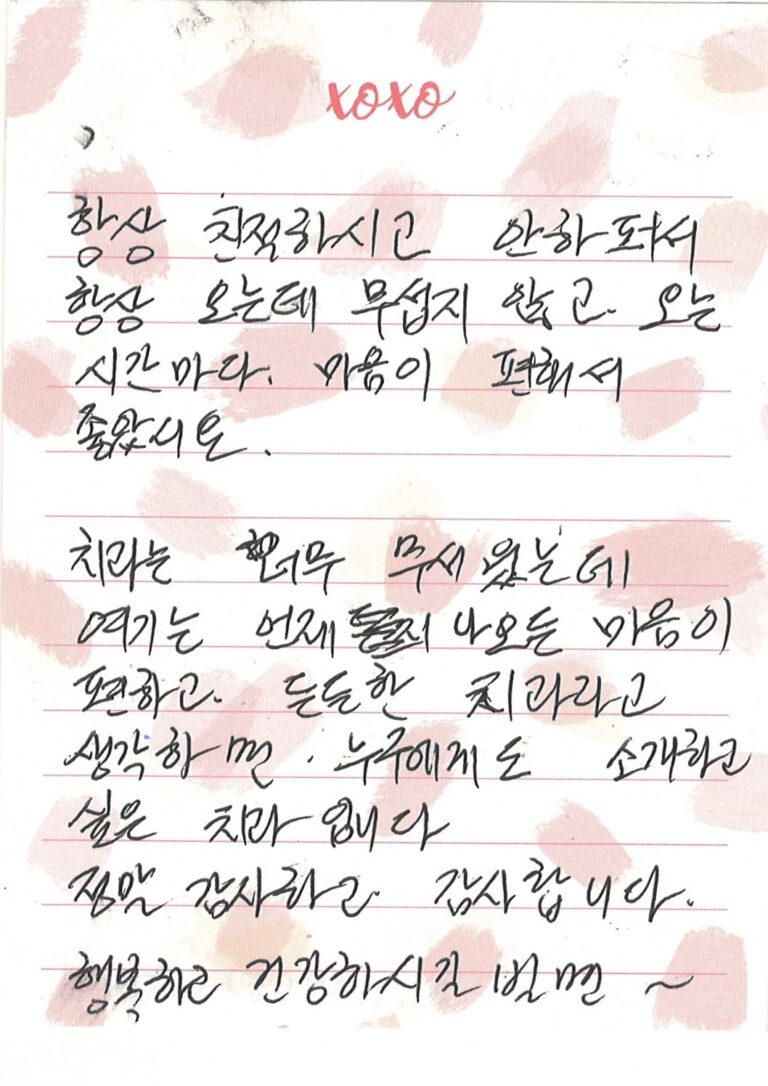 xoxo
항상 친적하시고 안하퍼서
항상 오는데 무섭지 않고. 오는
시간마다. 마음이 편해서
좋았시요.
치과는 너무 무서웠는데
여기는 언제 나오든 마음이
편하고. 든든한 치과라고
생각하면. 누구에게도 소개하고
싶은 치과 입니다
정말 감사하고. 감사합니다.
행복하고 건강하시길 빌면 ~